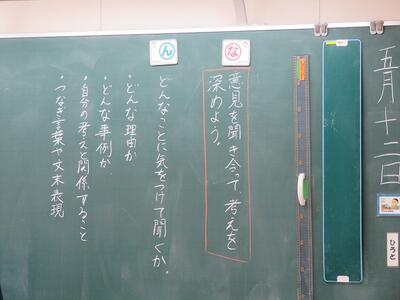 五月十二日
ひろと
な
意見を聞き合って、考えを
深めよう。
ん
どんなことに気をつけて聞くか。
・どんな理由か
・どんな事例か
・自分の考えと関係すること
・つなぎ言葉や文末表現